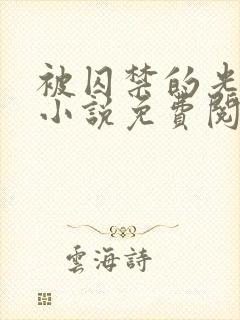 被囚禁的光
小說免費閱
雲海詩